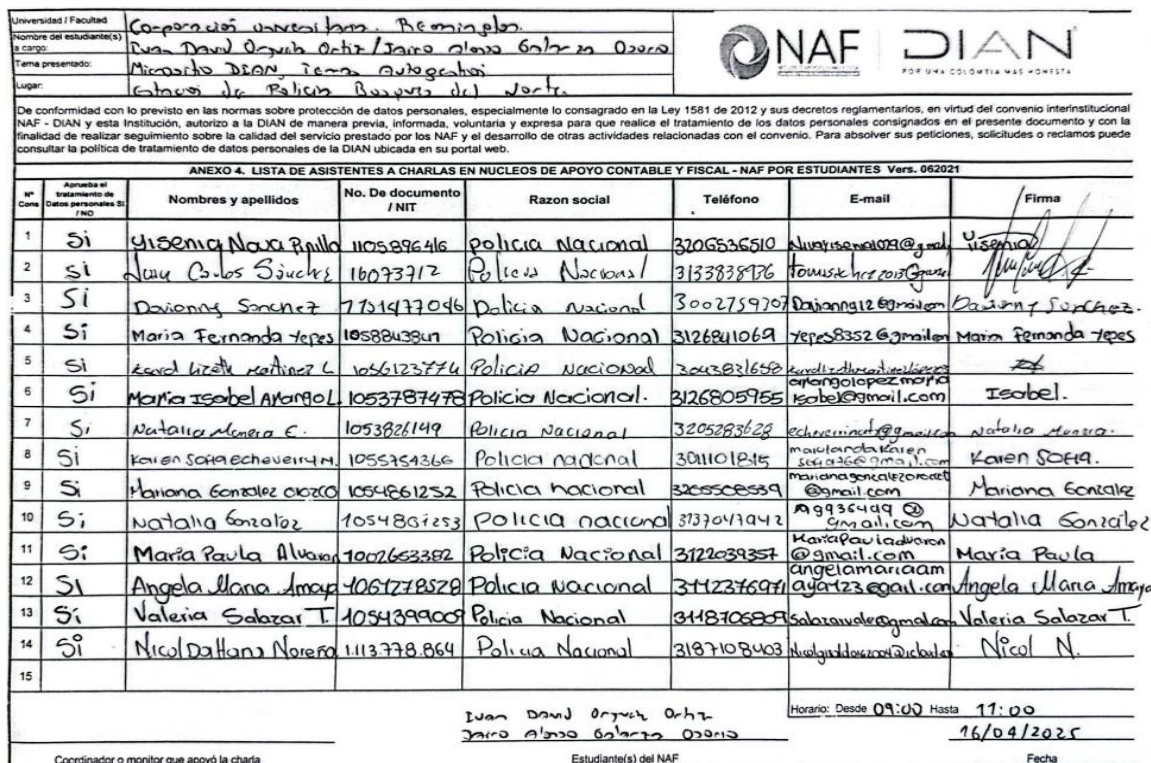 Universidad / Facultad Corporación universitaria. Remington.
Nombre del estudiante(s) a cargo: Ivan David Ortiz / Jairo Alonso Osorio
Tema presentado: Micrositio DIAN,
Lugar: Policia Bosques del Norte.
NAF DIAN
POR UNA COLOMBIA MAS HONESTA
De conformidad con lo previsto en las normas sobre protección de datos personales, especialmente lo consagrado en la Ley 1581 de 2012 y sus decretos reglamentarios, en virtud del convenio interinstitucional
NAF - DIAN y esta Institución, autorizo a la DIAN de manera previa, informada, voluntaria y expresa para que realice el tratamiento de los datos personales consignados en el presente documento y con la
finalidad de realizar seguimiento sobre la calidad del servicio prestado por los NAF y el desarrollo de otras actividades relacionadas con el convenio. Para absolver sus peticiones, solicitudes o reclamos puede
consultar la política de tratamiento de datos personales de la DIAN ubicada en su portal web.
ANEXO 4. LISTA DE ASISTENTES A CHARLAS EN NUCLEOS DE APOYO CONTABLE Y FISCAL - NAF POR ESTUDIANTES Vers. 062021
Nº Cons Aprueba el tratamiento de Datos personales SI / NO Nombres y apellidos No. De documento / NIT Razon social Teléfono E-mail Firma
1 Si Yisenia Nava Pinilla 1105896416 policia Nacional 3206536510 Yisenia
2 Si Juan Carlos Sánchez 16073712 Policia Nacional 3133838936
3 Si Davianny Sanchez Policia nacional Davianny12@gmail.com Davianny Sanchez.
4 Si Maria Fernanda Yepes Policia Nacional 3126841069 yepes8352@gmail.com Maria Fernanda Yepes
5 Si Karol Lizeth Martinez L 1056123774 Policia Nacional 3043831658
6 Si Maria Isabel Arango L. 1053787478 Policia Nacional. 3126805955 arangolopezmaria isabel@gmail.com Isabel.
7 Si Natalia E. 1053826149 Policia Nacional 3205283628 Natalia
8 Si Karen Sofia echeverry M. 1055754366 Policia nacional Karen Sofia.
9 Si Mariana Gonzalez Orozco 1054861252 Policia nacional 3205508539 Mariana Gonzalez
10 Si Natalia Gonzalez 1054861253 Policia nacional 3137047942 gmail.com Natalia Gonzalez
11 Si Maria Paula 1002653382 Policia Nacional 3122039357 @gmail.com Maria Paula
12 Si Angela Maria Amaya 1061278528 Policia Nacional 3112376971 angelamariaam aya123@gail.com Angela Maria Amaya
13 Si Valeria Salazar T. 1054399009 Policia Nacional 3118706809 Valeria Salazar T.
14 Si Nicol Noreña 1.113.778.864 Policia Nacional 3187108403 Nicol N.
15
Horario: Desde 09:00 Hasta 11:00
Ivan David Ortiz
Jairo Alonso Osorio
16/04/2025
Coordinador o monitor que apoyó la charla Estudiante(s) del NAF Fecha